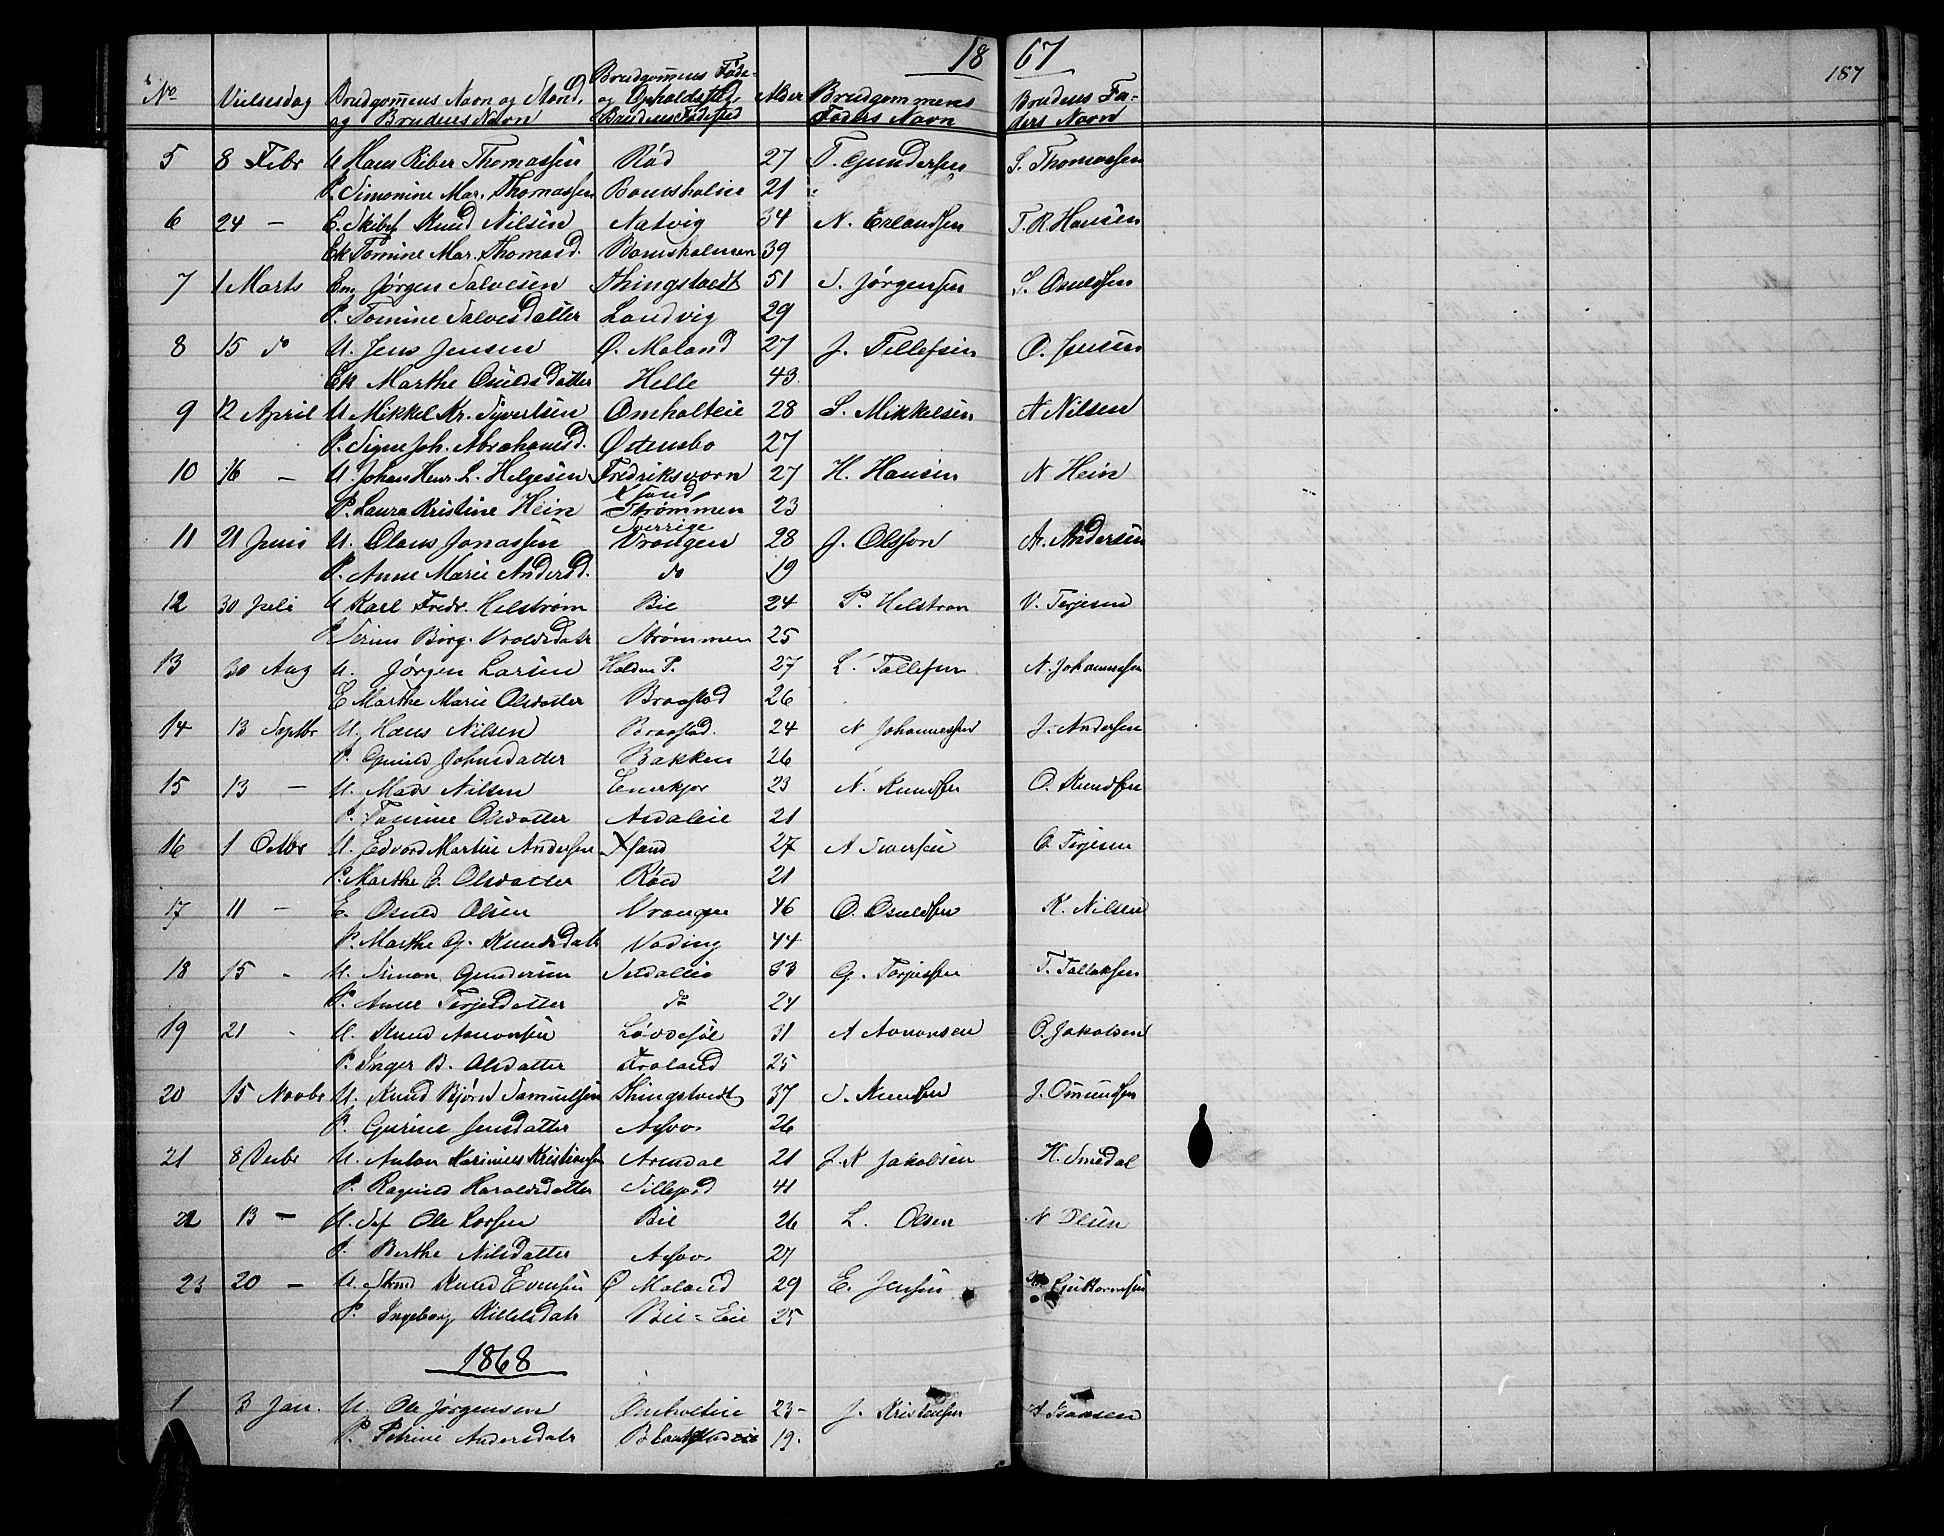 18 67
187
No Vielsesdag Brudgomens Navn og Stand, og Brudens Navn Brudgomens Føde- og Opholdssted, Brudens Fødested Alder Brudgommens Faders Navn Brudens Fa- ders Navn
5 8 Febr U Hans Riber Thomassen Rød 27 T. Gundersen S. Thomassen
P. Simonine Mar. Thomassen 21
6 24 - E. Skibsf Knud Nilsen Natvig 34 N. Erlandsen T. R. Hansen
Ek Tomine Mar. Thomasd. Bomsholmen 39
7 1 Marts Em Jørgen Salvesen Thingstvedt 51 S. Jørgensen S. Osuldsen
P. Tomine Salvesdatter Landvig 29
8 15 do U. Jens Jensen Ø. Moland 27 J. Tellefsen O. Jensen
Ek Marthe Osuldsdatter Helle 43
9 12 April U Mikkel Kr. Syvertsen Omholteie 28 S. Mikkelsen A Nilsen
P. Signe Joh. Abrahamsd. Østensbo 27
10 16 - U. Johan Henr. L. Helgesen Fredriksvorn 27 H. Hansen N Hein
P. Laura Kristine Hein Xsand Strømmen 23
11 21 Juni U. Olaus Jonassen Sverrige Vrangen 28 J. Olsson A. Andersen
P. Anne Marie Andersd. do 19
12 30 Juli U Karl Fredr. Helstrøm Bie 24 P. Helstrøn V. Terjesen
P Serine Borg. Vroldsdatr Strømmen 25
13 30 Aug U. Jørgen Larsen Holden P. 27 L. Tollefsen N. Johannessen
E Marthe Marie Olsdatter Braastad 26
14 13 Septbr U. Hans Nilsen Braastad. 24 N Johannessen J. Andersen
P. Gunild Johnsdatter Bakken 26
15 13 - U. Mads Nilsen Enerkjær 23 N. Knudsen O. Knudsen
P. Tomine Olsdatter 21
16 1 Octbr U. Edvard Martin Andersen Xsand 27 A Iversen O. Terjesen
P. Marthe E. Olsdatter Røed 21
17 11 - E. Osuld Olsen Vrangen 46 O. Osuldsen K. Nilsen
P. Marthe G. Knudsdatr Vading 44
18 15 - U. Simon Gundersen 33 G. Torjussen T. Tallaksen
P. Anne Terjesdatter do 24
19 21 - U. Knud Aanonsen Løddesøl 31 A Aanonsen O. Jakobsen
P. Inger B. Olsdatter Froland 25
20 15 Novbr U. Knud Bjørn Samuelsen Thingstvedt 37 S. Knudsen J. Omundsen
P. Gurine Jensdatter Assvo 26
21 8 Decbr U. Anton Karinius Kristiansen Arendal 21 J. K Jakobsen H. Smedal
P. Ragnild Haraldsdatter Sillejord 41
22 13 - U. Sef Ole Larsen Bie 26 L. Olsen N Olsen
P. Berthe Nilsdatter Assvo 27
23 20 - U. Knud Evensen Ø Moland 29 E. Jensen Guttormsen
P. Ingeborg Killelsdatr Bie-Eie 25
1868
1 3 Jan. U. Ole Jørgensen Omholteie 23- J. Kristensen A Isaksen
P. Petrine Andersdatr 19.